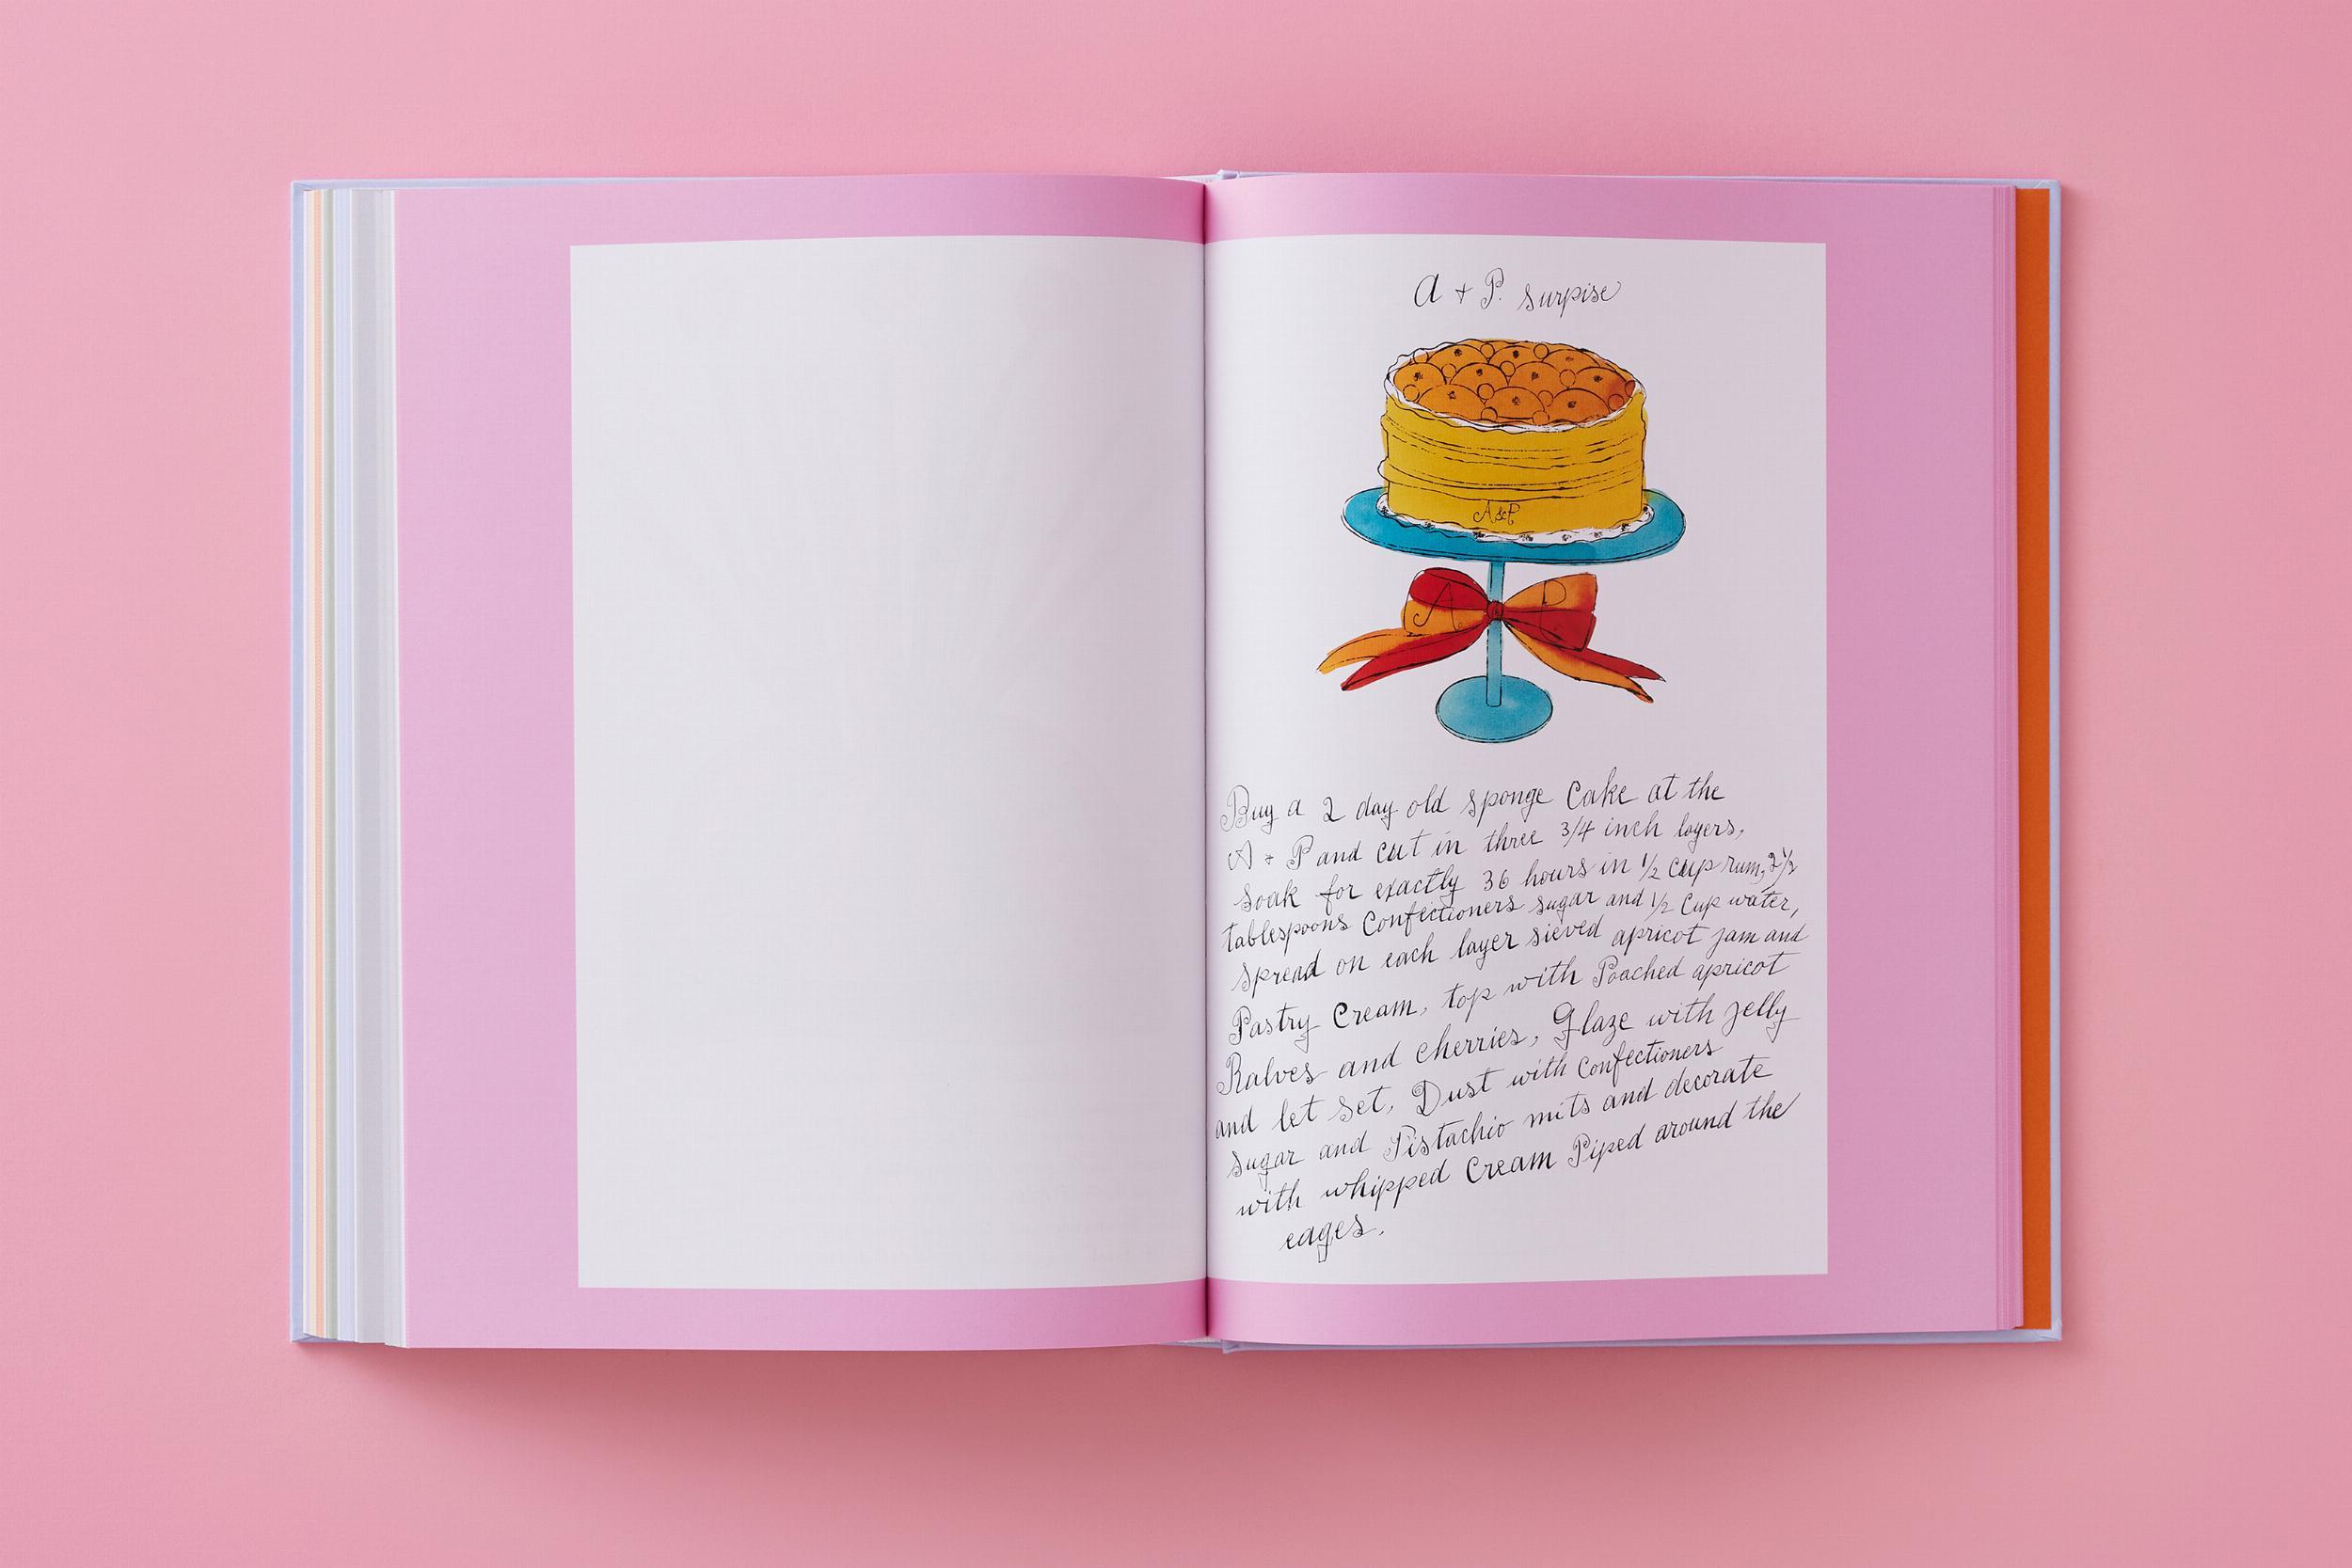 A + P. surpise
A&P
A P
Buy a 2 day old sponge Cake at the
A + P and cut in three 3/4 inch layers,
Soak for exactly 36 hours in 1/2 cup rum, 2 1/2
tablespoons Confectioners sugar and 1/2 Cup water,
Spread on each layer sieved apricot jam and
Pastry Cream, top with Poached apricot
Ralves and cherries, Glaze with jelly
and let set, Dust with confectioners
sugar and Pistachio mits and decorate
with whipped Cream Piped around the
edges.